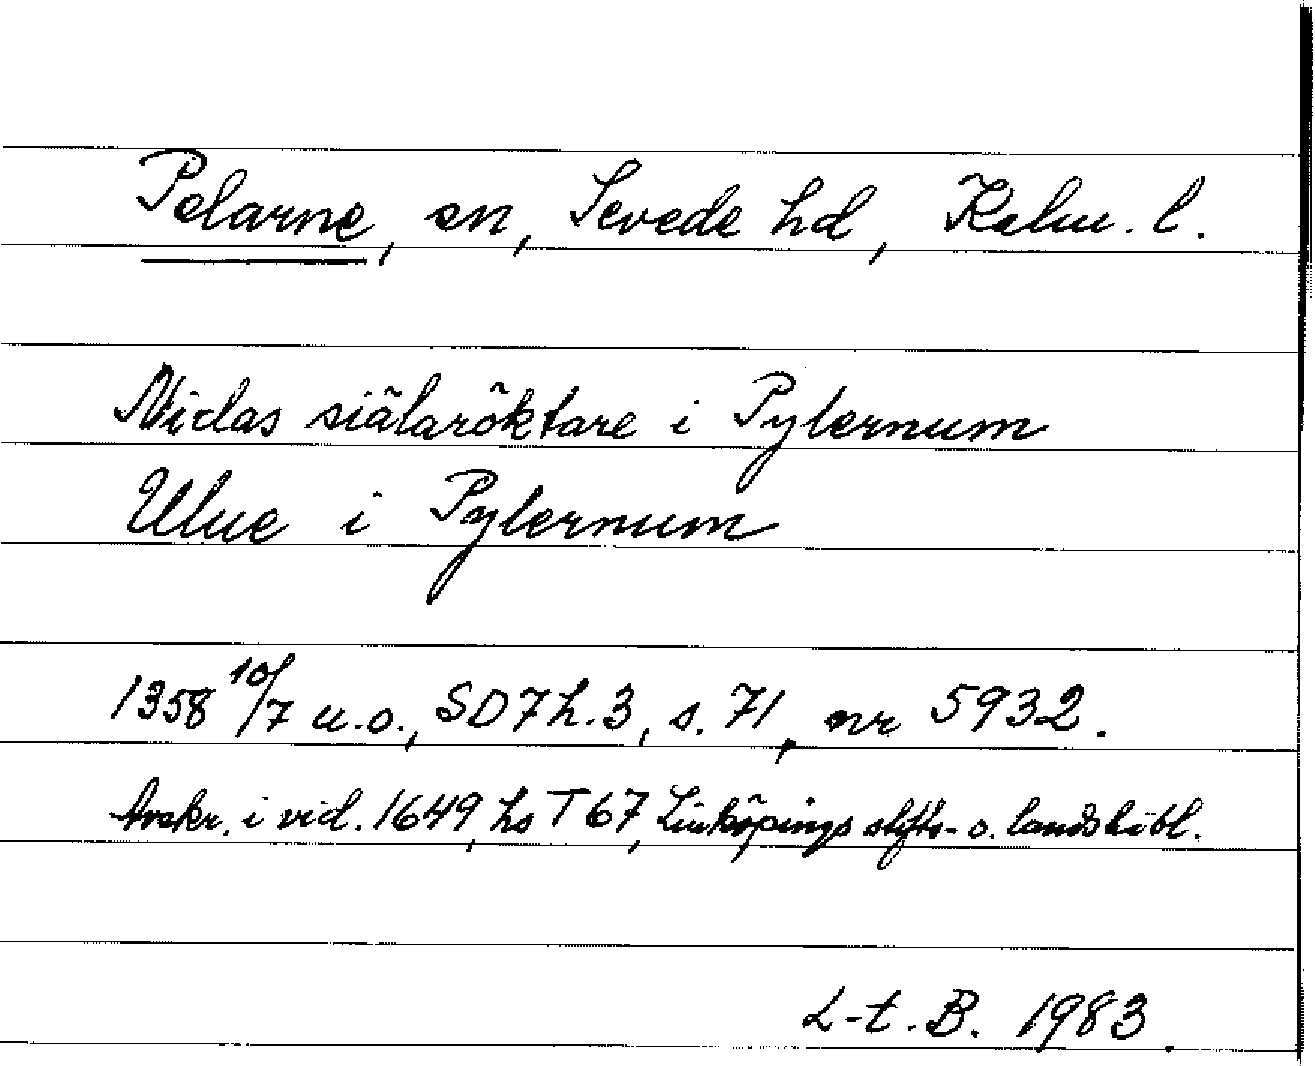 Pelarne, sn, Sevede hd, Kalm. l.
Niclas siälaröktare i Pylernum
Ulue i Pylernum
1358 10/7 u.o., SD 7 h. 3, s. 71, nr 5932.
Avskr. i vid. 1649, hs T 67, Linköpings stifts- o. landsbibl.
L-t. B. 1983.